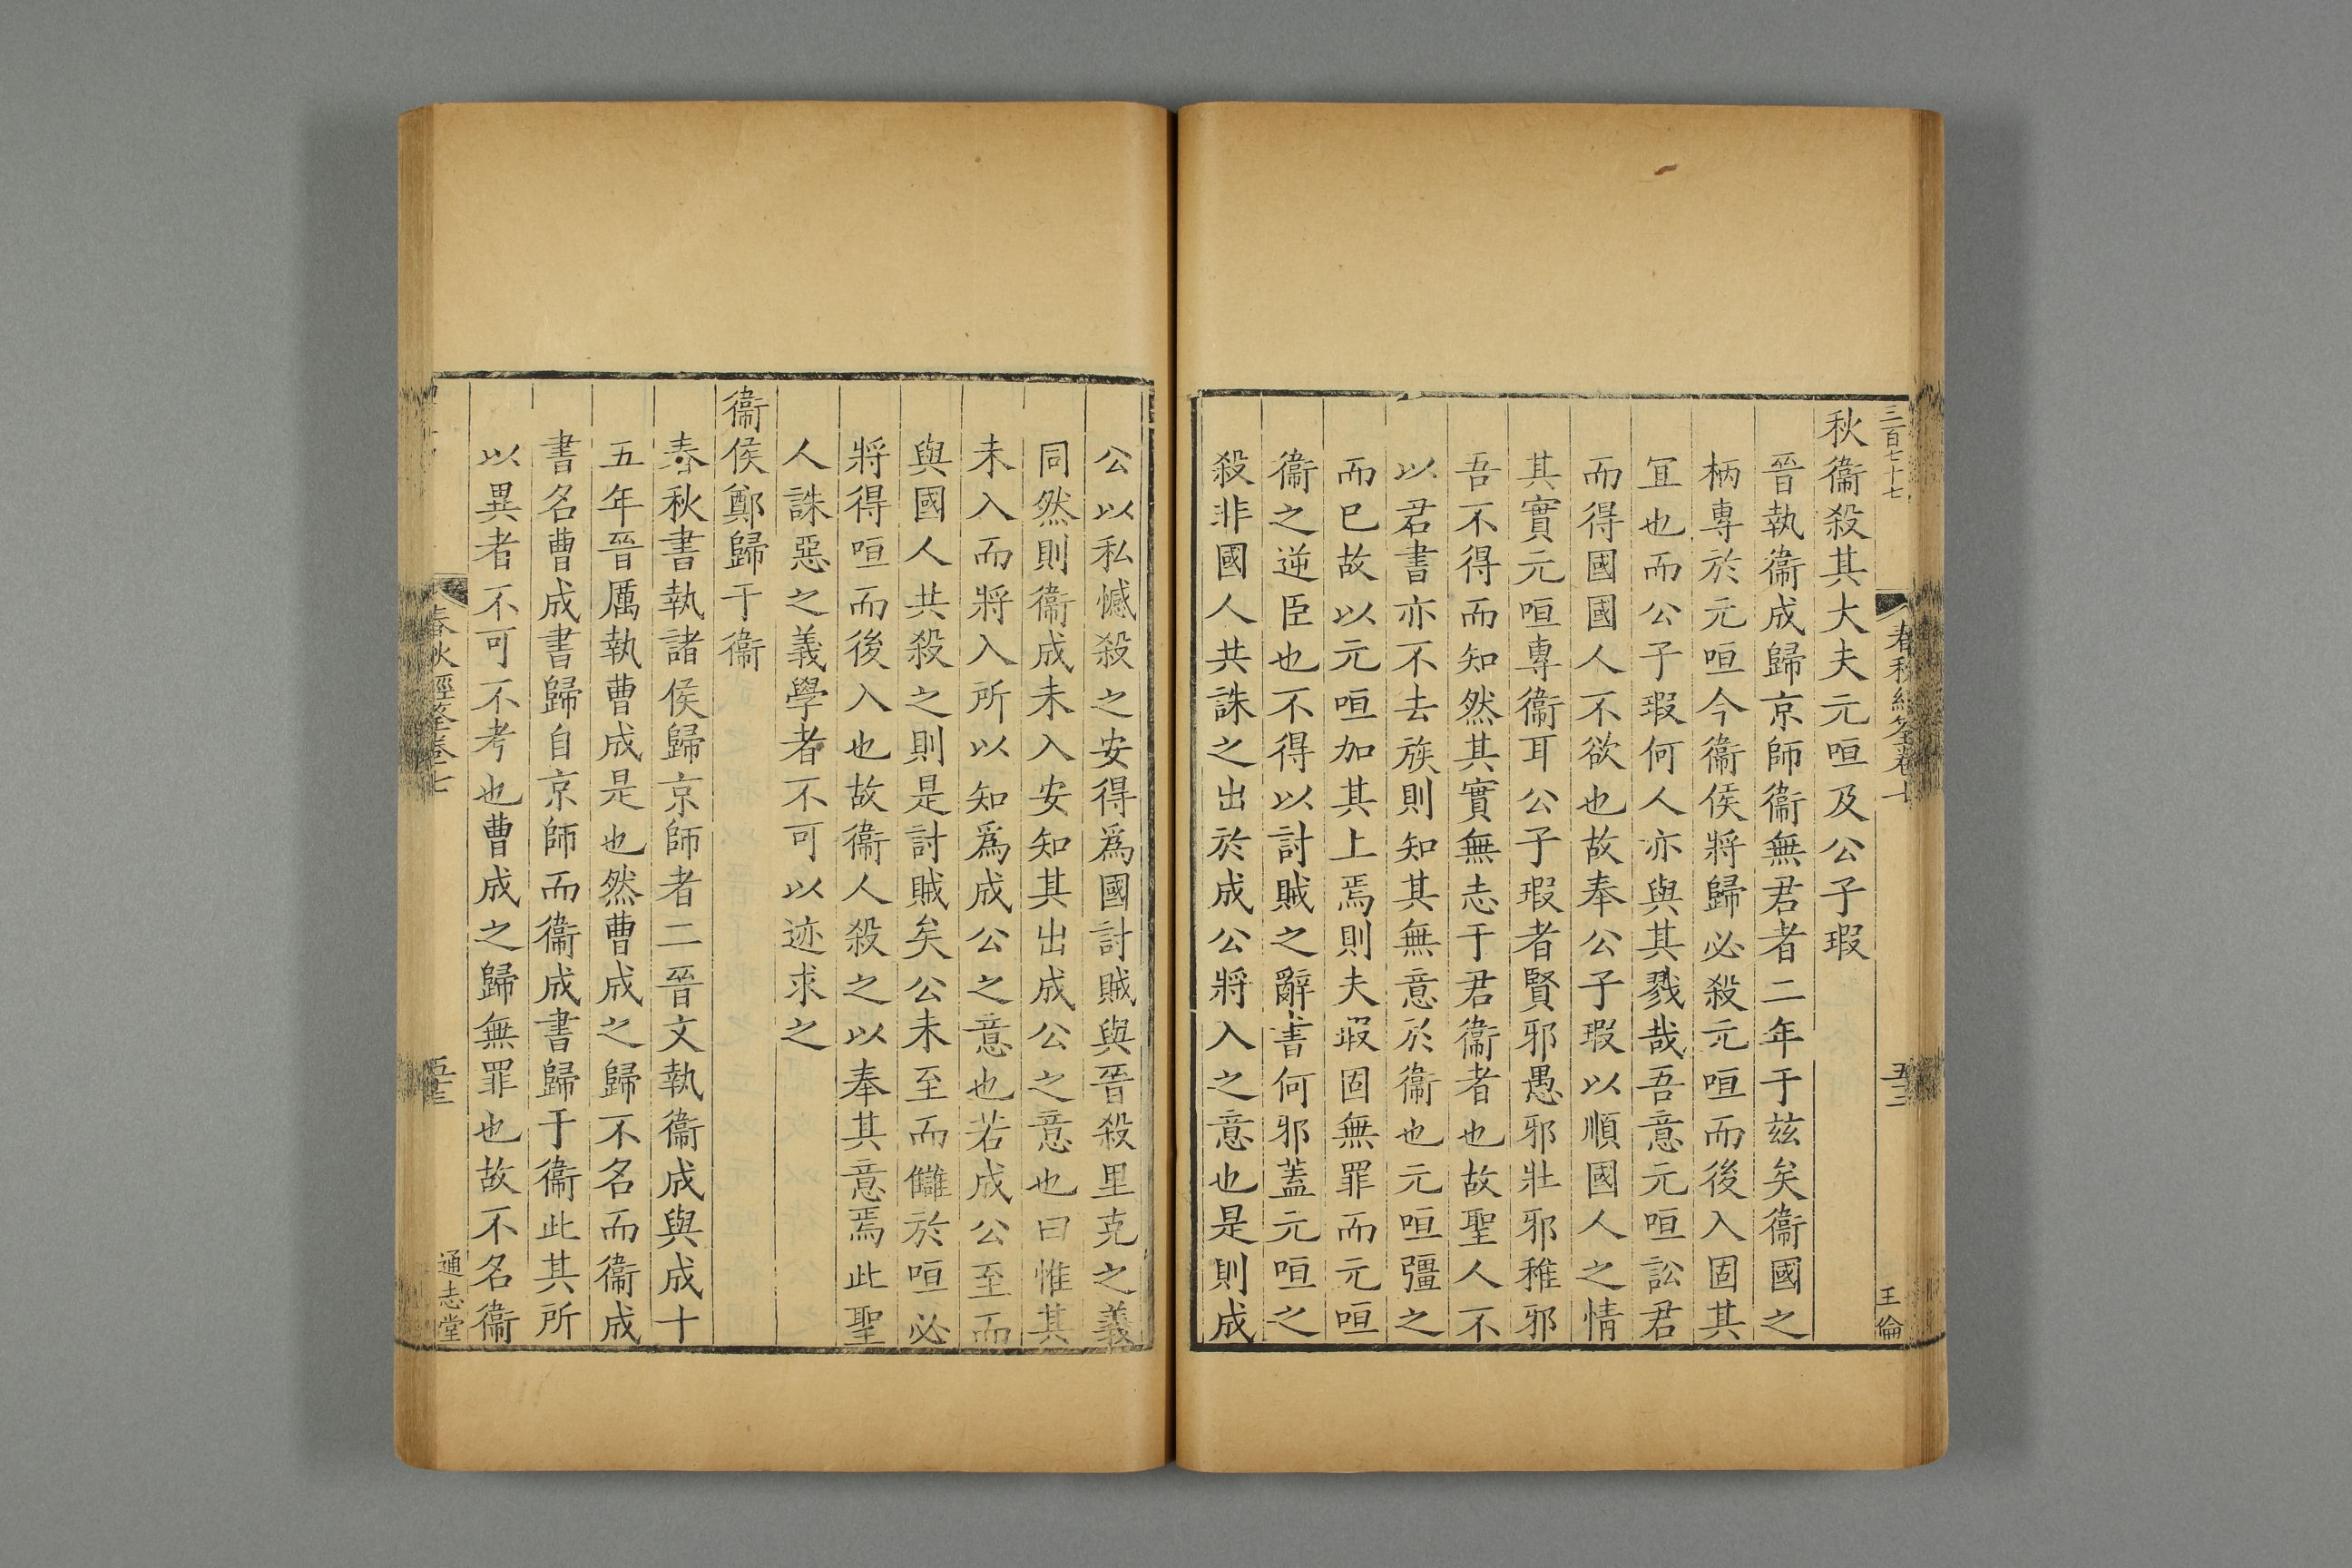 三百七十七
秋衞殺其大夫元咺及公子瑕
晉執衞成歸京師衞無君者二年于兹矣衞國之
柄專於元咺今衞侯將歸必殺元咺而後入固其
冝也而公子瑕何人亦與其戮哉吾意元咺訟君
而得國國人不欲也故奉公子瑕以順國人之情
其實元咺專衞耳公子瑕者賢邪愚邪壯邪稚邪
吾不得而知然其實無志于君衞者也故聖人不
以君書亦不去族則知其無意於衞也元咺彊之
而已故以元咺加其上焉則夫瑕固無罪而元咺
衞之逆臣也不得以討賊之辭書何邪蓋元咺之
殺非國人共誅之出於成公將入之意也是則成
王倫
公以私憾殺之安得爲國討賊與晉殺里克之義
同然則衞成未入安知其出成公之意也曰惟其
未入而將入所以知爲成公之意也若成公至而
與國人共殺之則是討賊矣公未至而讎於咺必
將得咺而後入也故衞人殺之以奉其意焉此聖
人誅惡之義學者不可以迹求之
衞侯鄭歸于衞
春秋書執諸侯歸京師者二晉文執衞成與成十
五年晉厲執曹成是也然曹成之歸不名而衞成
書名曹成書歸自京師而衞成書歸于衞此其所
以異者不可不考也曹成之歸無罪也故不名衞
通志堂